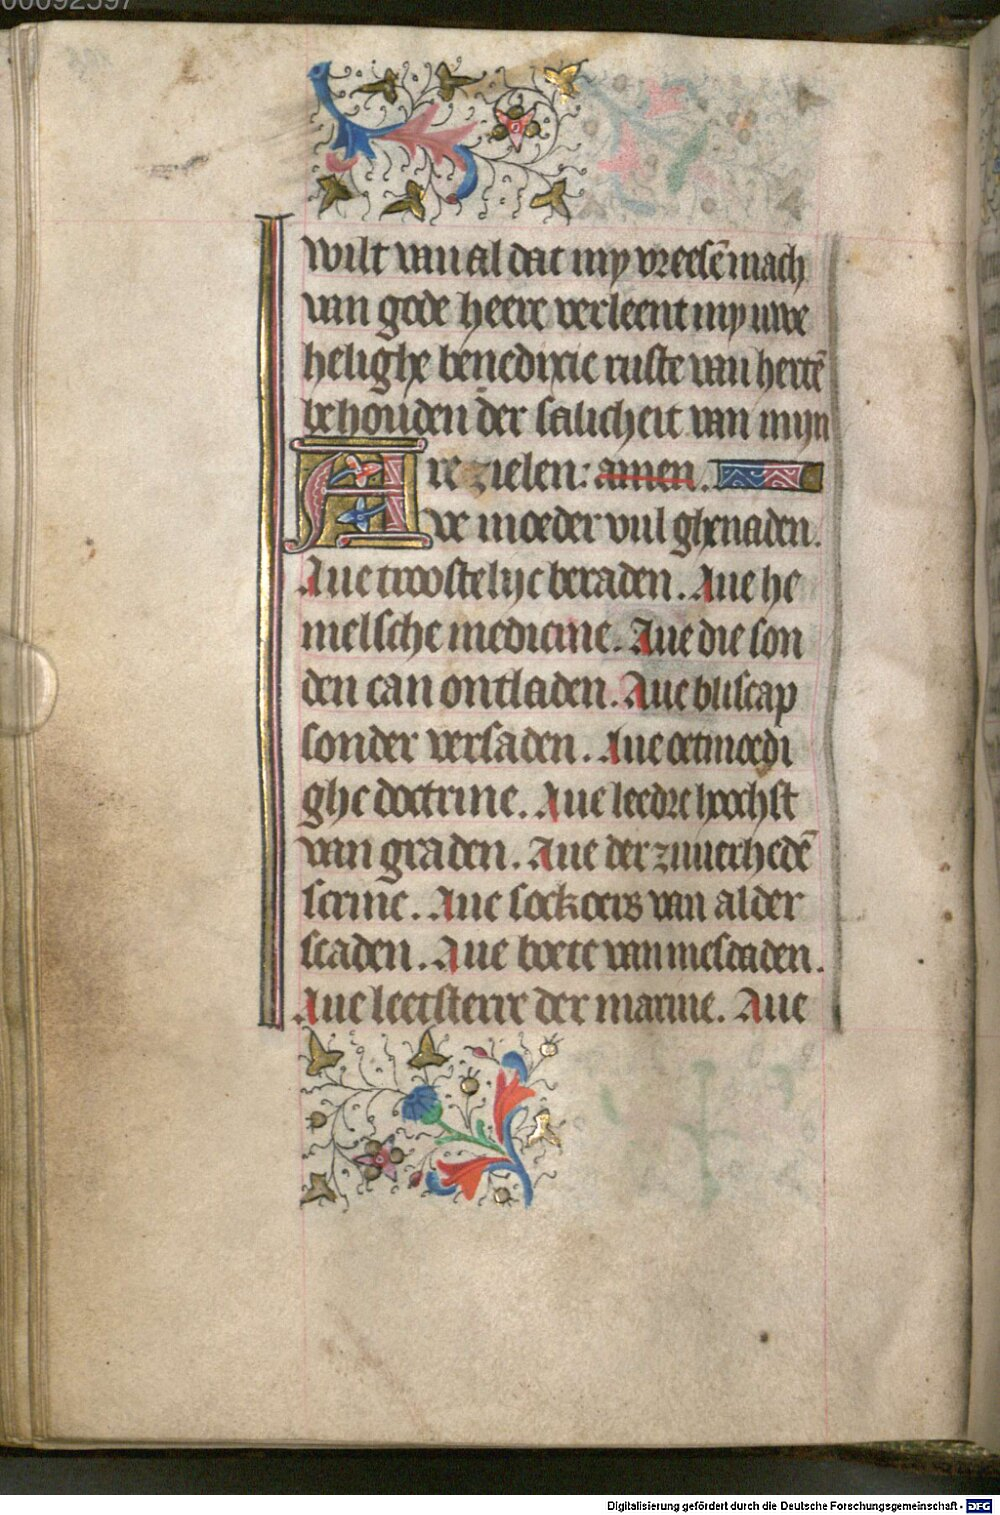 00092597
wilt van al dat my vreesē mach
van gode heere verleent my uwe
helighe benedixie ruste van hertē
behouden der salicheit van mijn
re zielen: amen.
Ave moeder vul ghenaden.
Aue troostelijc beraden. Aue he
melsche medicine. Aue die son
den can ontladen. Aue bliscap
sonder versaden. Aue oetmoedi
ghe doctrine. Aue leedre hoochst
van graden. Aue der zuuerhedē
scrine. Aue sockoers van alder
scaden. Aue boete van mesdaden.
Aue leetsterre der marine. Aue
Digitalisierung gefördert durch die Deutsche Forschungsgemeinschaft - DFG